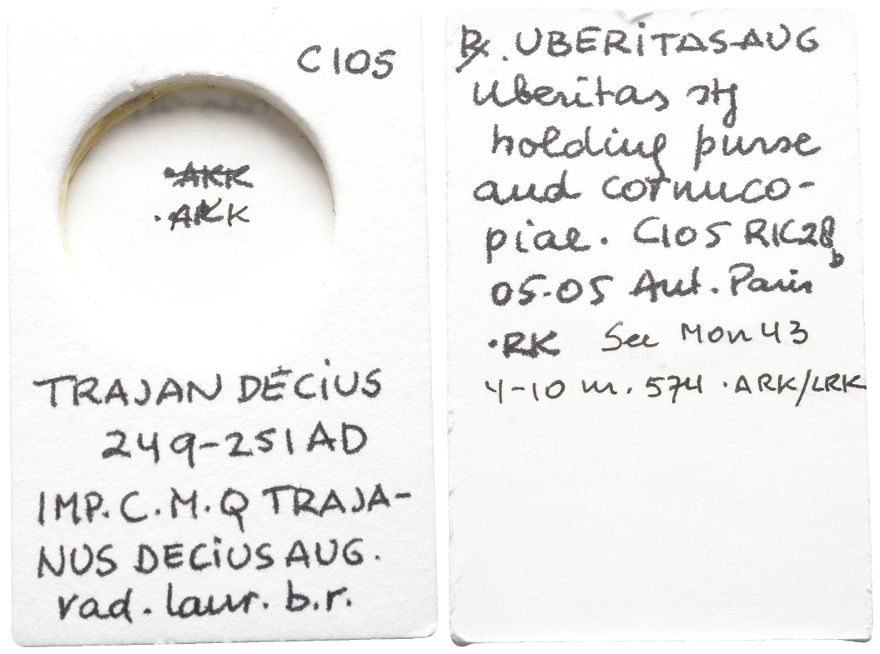 C105
·AKK
·AKK
TRAJAN DÉCiUS
249-251 AD
IMP. C. M. Q TRAJA-
NUS DECiUS AUG.
rad. laur. b.r.
℞. UBERiTAS AUG
Uberitas stg
holding purse
and cornuco-
piae. C105 RIC28b
05-05 Aut. Paris
·RK See Mon 43
4-10 nr. 574 ·ARK/LRK